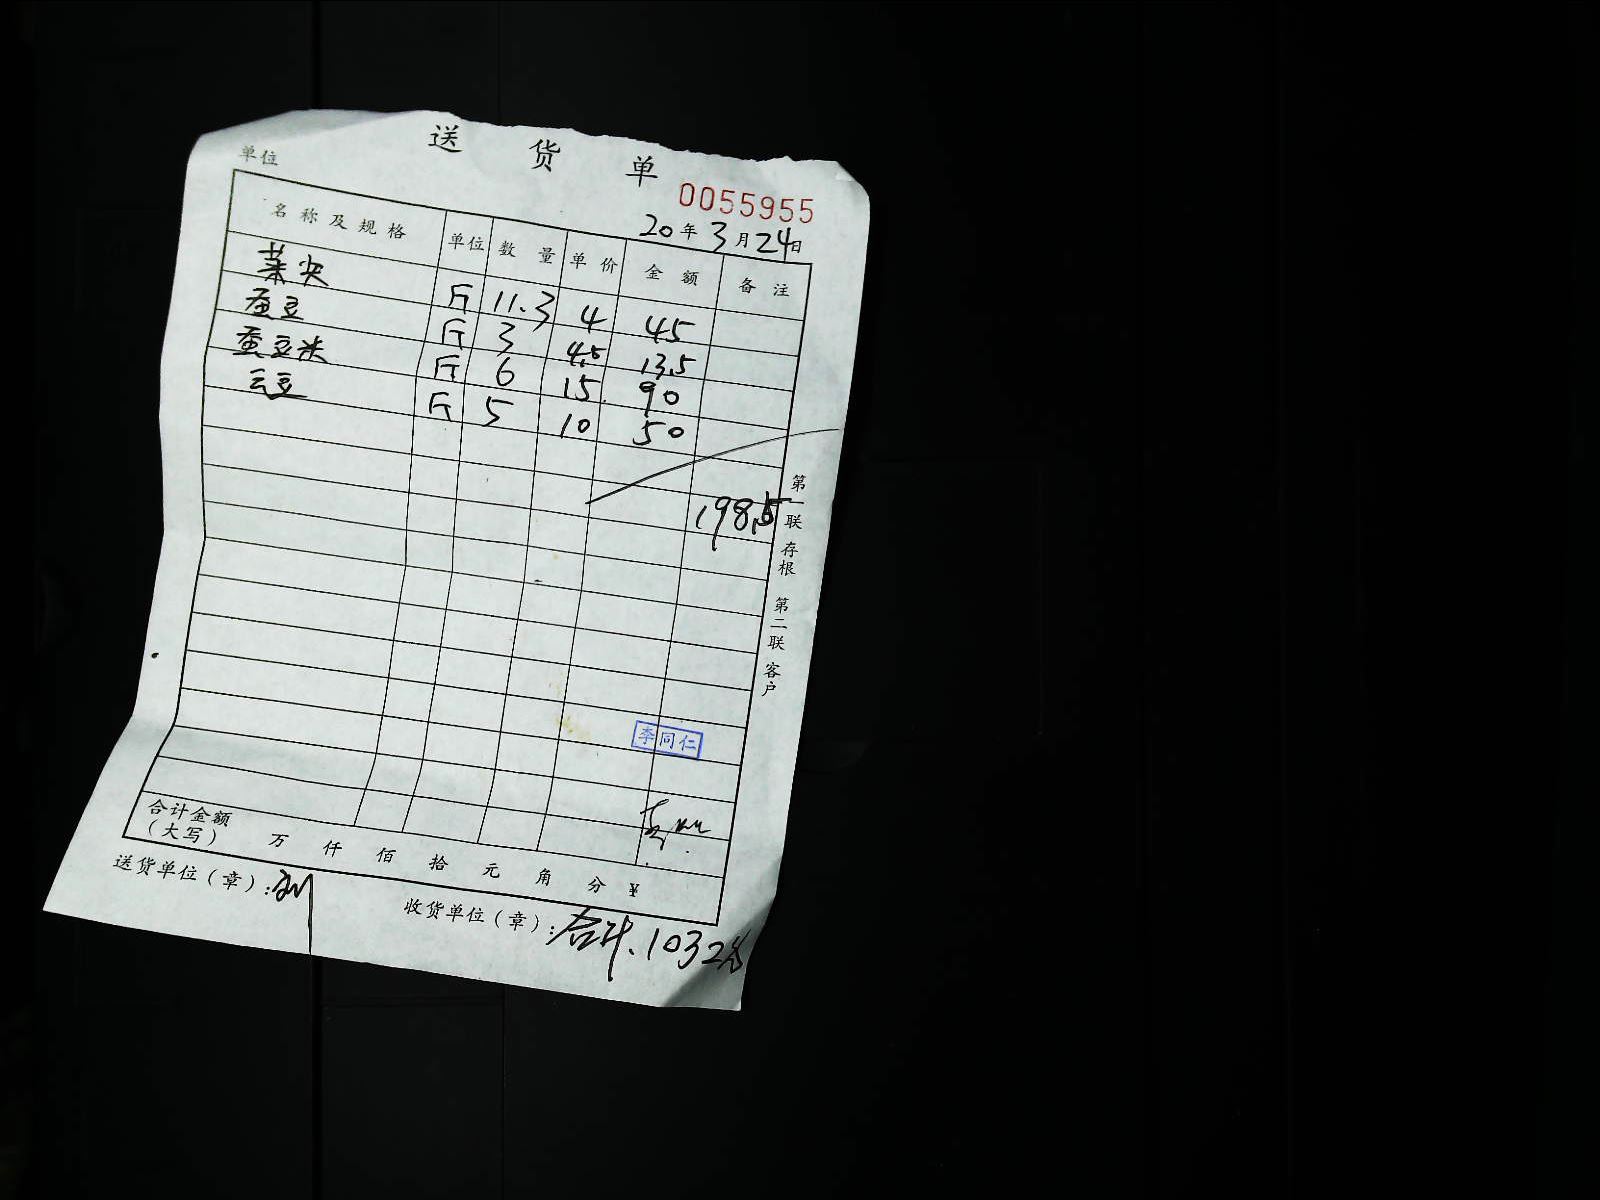 送货单
单位
0055955
20年3月24日
名称及规格 单位 数量 单价 金额 备注
菜尖 斤 11.3 4 45
蚕豆 斤 3 4.5 13.5
蚕豆米 斤 6 15 90
云豆 斤 5 10 50
198.5
第一联 存根 第二联 客户
李同仁
合计金额
(大写) 万 仟 佰 拾 元 角 分 ¥
送货单位(章):
收货单位(章): 合计.1032